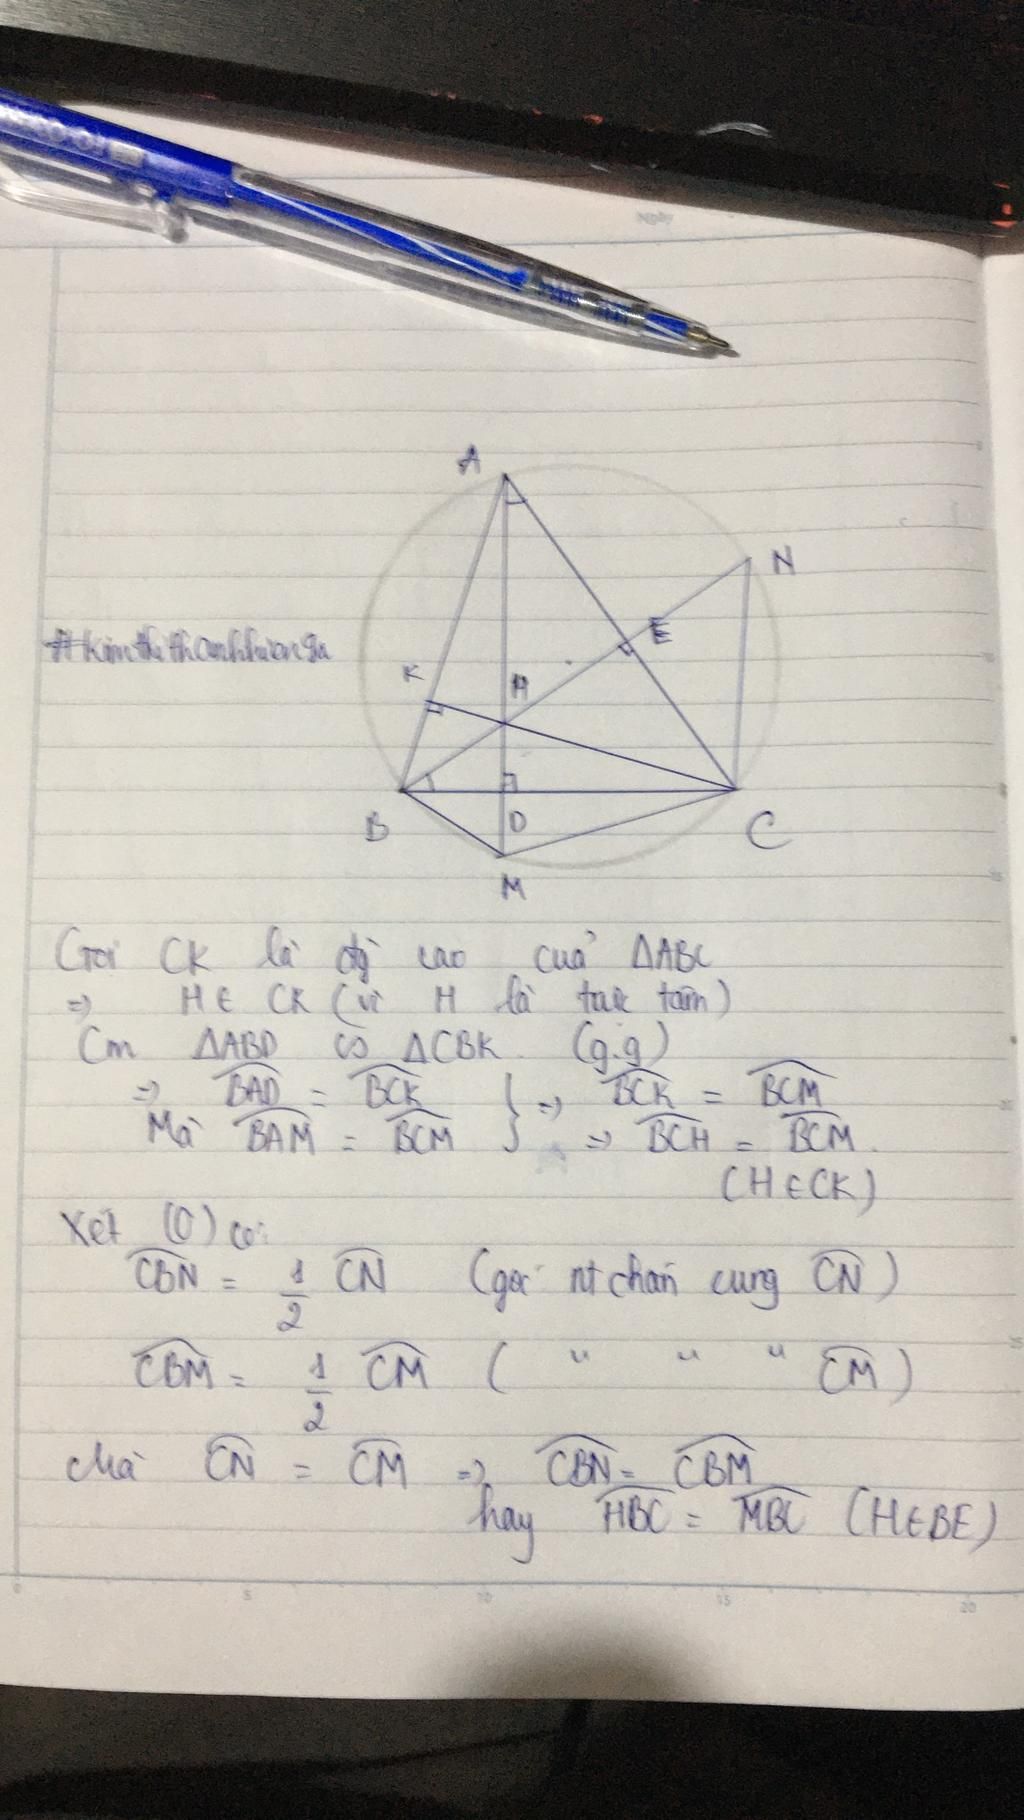 A
N
E
K
H
#kimthithanhhuongna
B
D
C
M
Gọi CK là đg cao của ΔABC
=> H ∈ CK (vì H là trực tâm)
Cm ΔABD ∽ ΔCBK (g.g)
=> BAD = BCK } => BCK = BCM
Mà BAM = BCM => BCH = BCM.
(H ∈ CK)
Xét (O) có:
CBN = 1/2 CN (góc nt chắn cung CN)
CBM = 1/2 CM ( " " " CM)
Mà CN = CM => CBN = CBM
hay HBC = MBC (H ∈ BE)